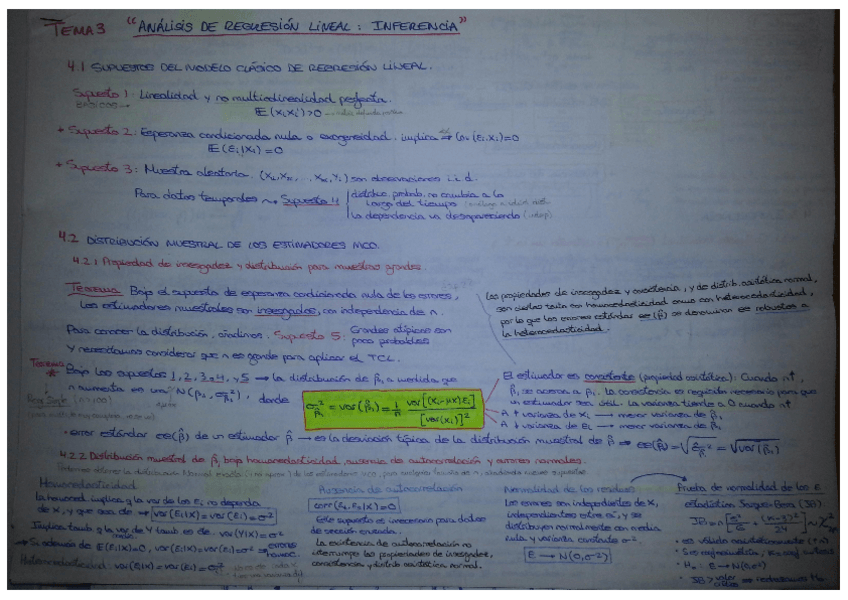 TEMA 3 "ANÁLISIS DE REGRESIÓN LINEAL: INFERENCIA"
4.1 SUPUESTOS DEL MODELO CLÁSICO DE REGRESIÓN LINEAL.
Supuesto 1: Linealidad y no multicolinealidad perfecta.
BÁSICOS
E(XiXi')>0
+ Supuesto 2: Esperanza condicionada nula o exogeneidad, implica ⇒ Cov(Ei,Xi)=0
E(Ei|Xi)=0
+ Supuesto 3: Muestra aleatoria.
son observaciones i.i.d.
Para datos temporales → Supuesto 4
distribuc. probab. no cambia a lo
largo del tiempo
la dependencia va desapareciendo
4.2 DISTRIBUCIÓN MUESTRAL DE LOS ESTIMADORES MCO.
4.2.1 Propiedad de insesgadez y distribución para muestras grandes.
Teorema: Bajo el supuesto de esperanza condicionada nula de los errores,
los estimadores muestrales son insesgados, con independencia de n.
Las propiedades de insesgadez y consistencia, y de distrib. asintótica normal,
son ciertas tanto con homocedasticidad como con heterocedasticidad,
por lo que los errores estándar ee(β̂) se denominan ee robustos a
la heterocedasticidad.
Para conocer la distribución, añadimos: Supuesto 5: Grandes atípicos son
poco probables
Y necesitamos considerar que n es grande para aplicar el TCL.
Teorema
* Bajo los supuestos 1, 2, 3, 4, y 5 → la distribución de β̂₁ a medida que
n aumenta es una N(β₁, σ²β̂₁), donde
σ²β̂₁ = var(β̂₁) = 1/n var[(Xi-μX)Ei] / [var(Xi)]²
El estimador es consistente (propiedad asintótica): Cuando n↑,
β̂₁ se acerca a β₁. La consistencia es requisito necesario para que
un estimador sea útil. La varianza tiende a 0 cuando n↑
A ↑ varianza de Xi → menor varianza de β̂₁
A ↓ varianza de Ei → menor varianza de β̂₁
• error estándar ee(β̂) de un estimador β̂ → es la desviación típica de la distribución muestral de β̂ ⇒ ee(β̂)=√σ̂²β̂ = √var(β̂)
4.2.2 Distribución muestral de β̂₁ bajo homocedasticidad, ausencia de autocorrelación y errores normales.
Homocedasticidad
la homoced. implica q la var de los Ei no dependa
de X, y que sea cte → var(Ei|X)=var(Ei)=σ²
Implica tamb q la var de Y tamb es cte → var(Y|X)=σ²
→ Si además de E(Ei|X)=0, var(Ei|X)=var(Ei)=σ² ⇒ errores
homoc.
Heterocedasticidad: var(Ei|X)=var(Ei)=σi²
Ausencia de autocorrelación
corr(Ei, Es|X)=0
Este supuesto es innecesario para datos
de sección cruzada.
La existencia de autocorrelación no
interrumpe las propiedades de insesgadez,
consistencia y distrib. asintótica normal.
Normalidad de los residuos
Los errores son independientes de X,
independientes entre sí, y se
distribuyen normalmente con media
nula y varianza constante σ².
E → N(0,σ²)
Prueba de normalidad de los E
estadístico Jarque-Bera (JB).
JB = n[a²/6 + (k-3)²/24] ~ χ²₂
• es válido asintóticamente (↑n)
• H₀: E → N(0,σ²)
• JB > valor crítico ⇒ rechazamos H₀